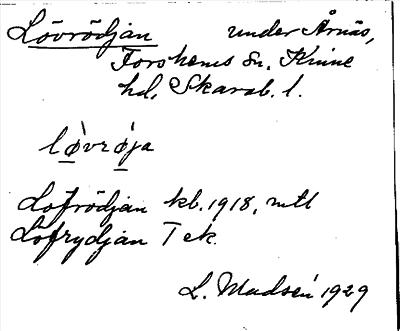 Lövrödjan under Årnäs,
Forshems sn. Kinne
hd, Skarab. l.
lø̀vrø̀ja
Lofrödjan kb. 1918, mtl
Lofrydjan T ek.
L. Madsén 1929